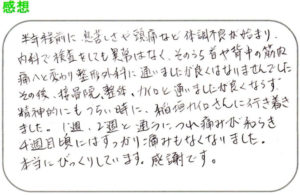 感想
半年程前に息苦しさや頭痛など体調不良が始まり、
内科で検査をしても異常はなく、そのうち首や背中の筋肉
痛へと変わり整形外科に通いましたが良くはなりませんでした
その後、接骨院、整体、カイロと通いましたが良くならず、
精神的にもつらい時に、稲毛カイロさんに行き着き
ました。1週、2週と通うにつれ痛みが和らぎ
4週目頃にはすっかり痛みもなくなりました。
本当にびっくりしています。感謝です。